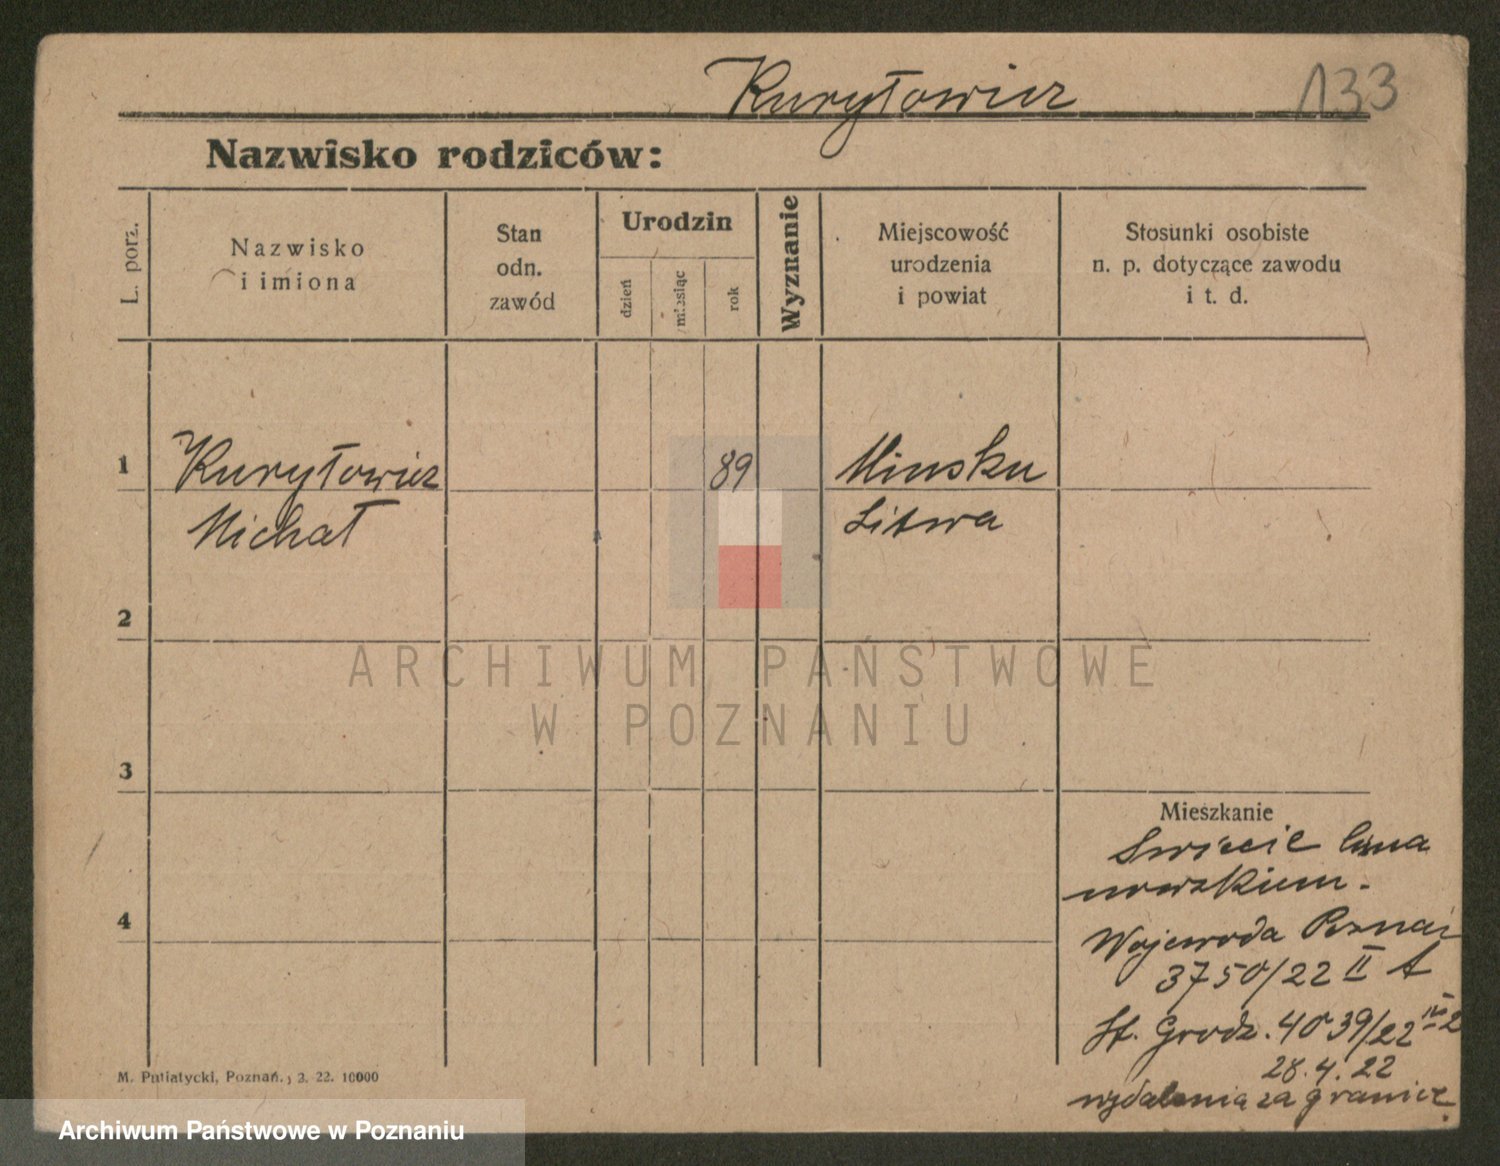 Kuryłowicz 133
Nazwisko rodziców:
L. porz.
Nazwisko
i imiona
Stan
odn.
zawód
Urodzin
dzień
miesiąc
rok
Wyznanie
Miejscowość
urodzenia
i powiat
Stosunki osobiste
n. p. dotyczące zawodu
i t. d.
1 Kuryłowicz 89 Minsku
Michał Litwa
2
3
4
ARCHIWUM PAŃSTWOWE
W POZNANIU
Mieszkanie
Wojewoda Poznań
3750/22 II A
St. Grodz. 4039/22
28.4.22
wydalenia za granicę
M. Putiatycki, Poznań. 3. 22. 10000
Archiwum Państwowe w Poznaniu